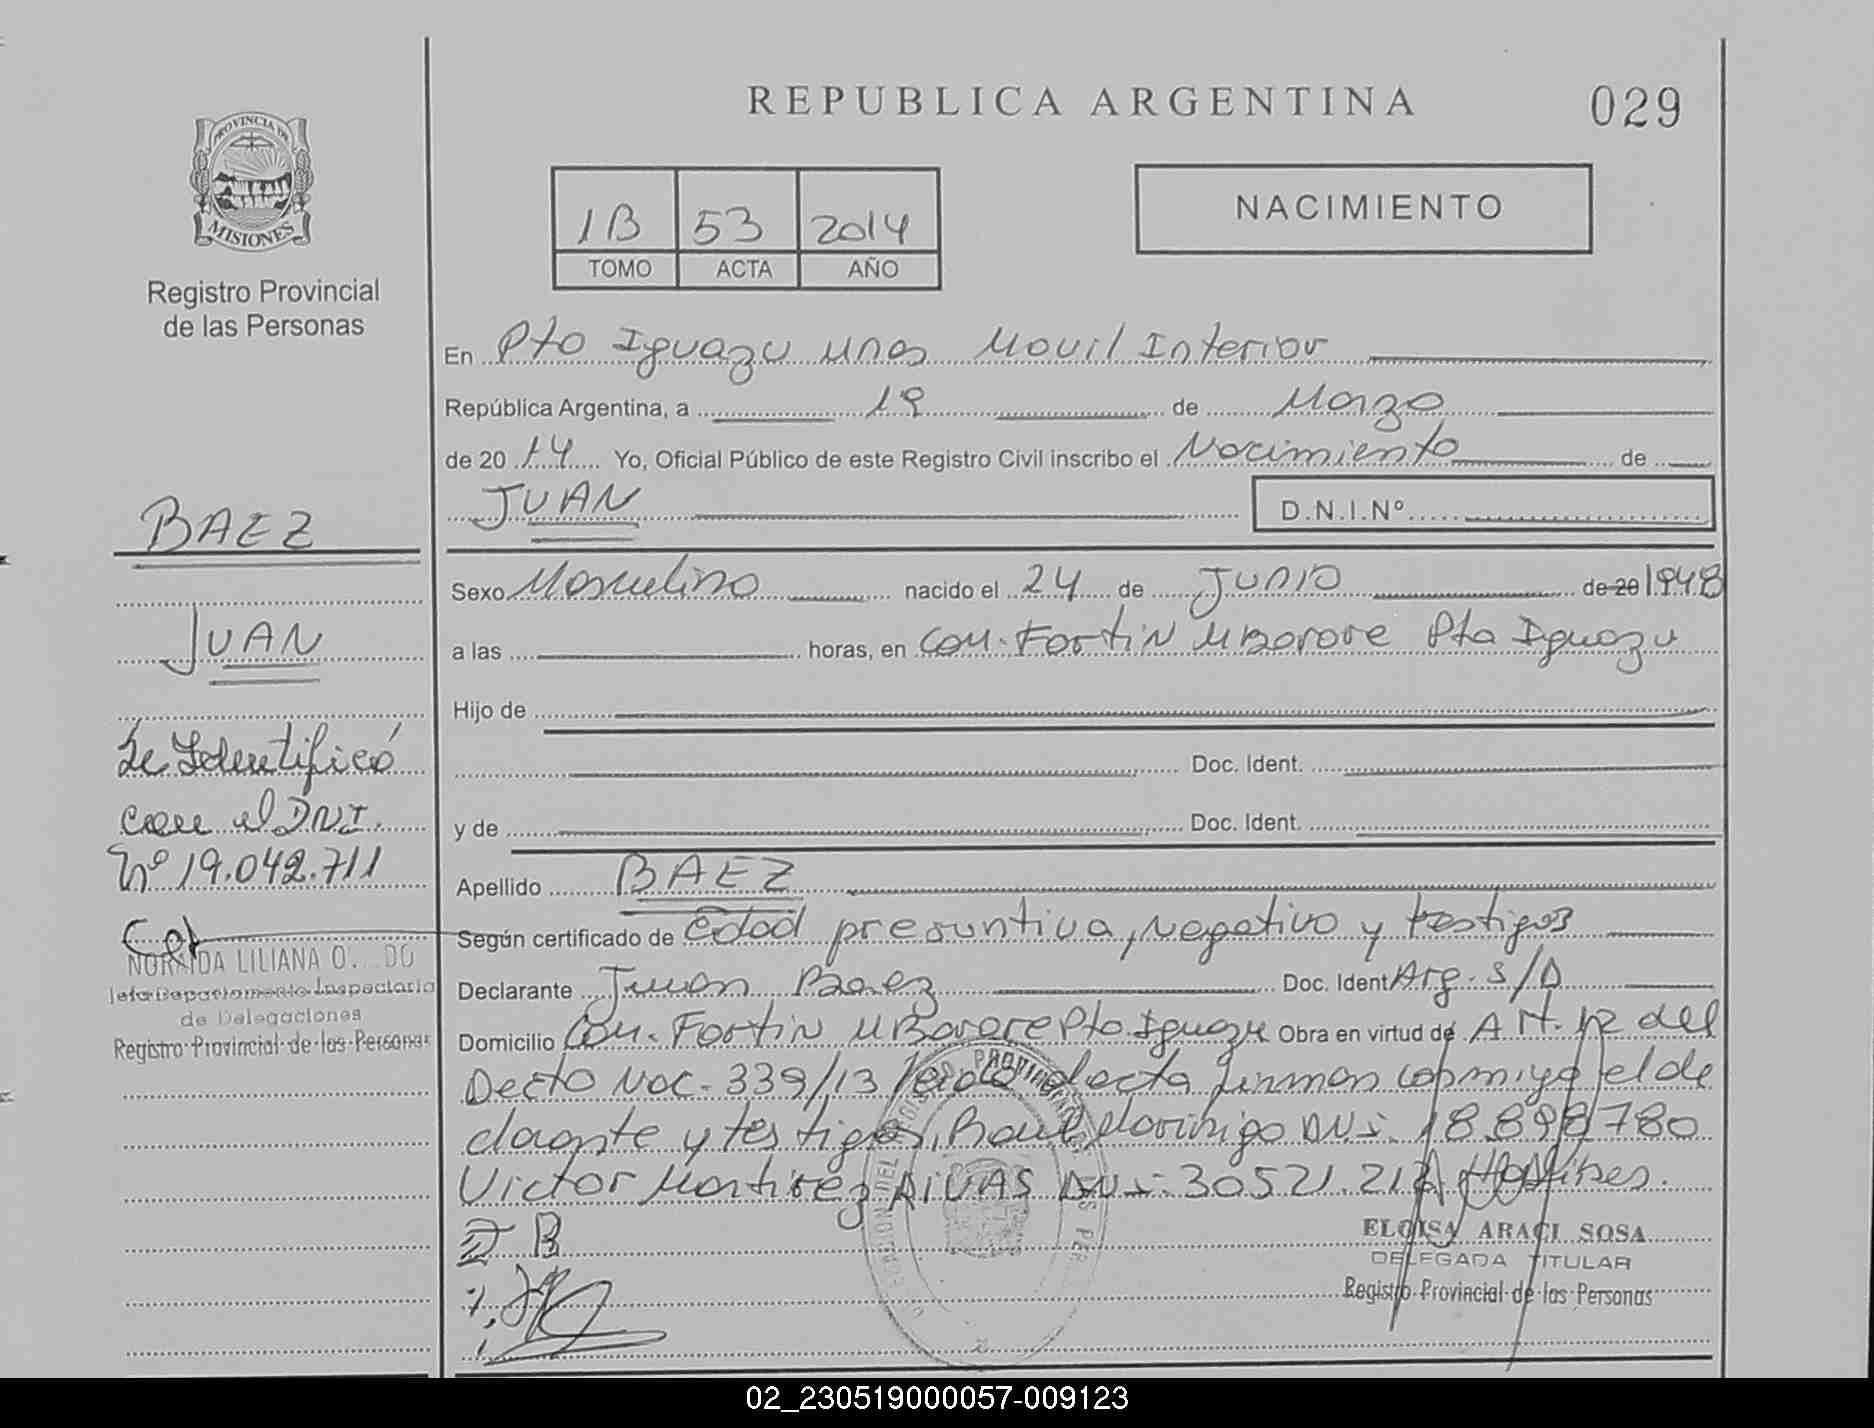 REPUBLICA ARGENTINA
029
PROVINCIA DE
MISIONES
Registro Provincial
de las Personas
NACIMIENTO
1B 53 2014
TOMO ACTA AÑO
En Pto Iguazu Mnes Movil Interior
República Argentina, a 19 de Marzo
de 20 14 Yo, Oficial Público de este Registro Civil inscribo el Nacimiento de
JUAN D.N.I.Nº
BAEZ
JUAN
Se Identificó
con el DNI.
Nº 19.042.711
LILIANA
Jefa Departamento Inspectoria
de Delegaciones
Registro Provincial de las Personas
Sexo Masculino nacido el 24 de Junio de 20 1948
a las horas, en Com. Fortin Mborore Pto Iguazu
Hijo de
Doc. Ident.
y de Doc. Ident.
Apellido BAEZ
Según certificado de edad presuntiva, negativo y testigos
Declarante Juan Baez Doc. Ident Arg. S/D
Domicilio Com. Fortin Mborore Pto Iguazu Obra en virtud de Art. 12 del
Decto Nac. 339/13 leida el acta firman conmigo el de
clarante y testigos, Raul Morinigo DNI. 18.898780
Victor Martinez RIVAS DNI: 30521.212
J B
ELOISA ARACI SOSA
DELEGADA TITULAR
Registro Provincial de las Personas
02_230519000057-009123